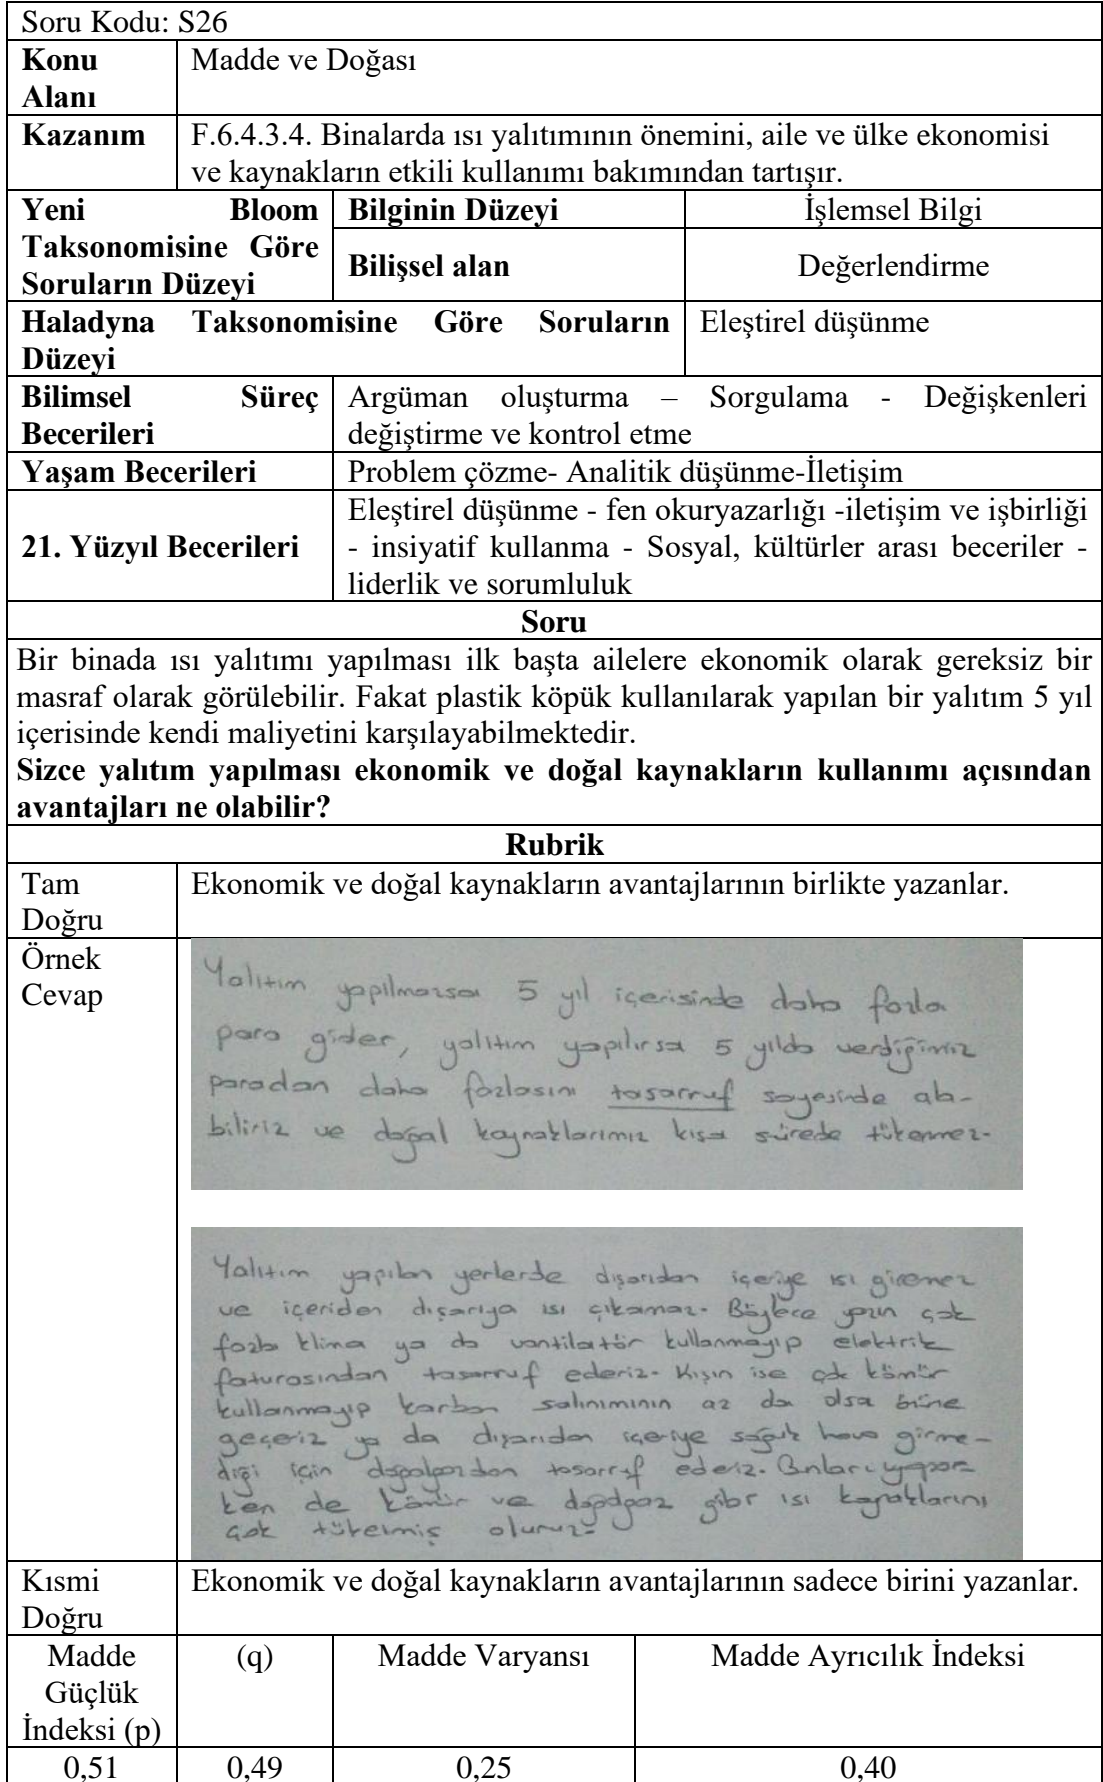 Soru Kodu: S26
Konu
Alanı
Madde ve Doğası
Kazanım
F.6.4.3.4. Binalarda ısı yalıtımının önemini, aile ve ülke ekonomisi
ve kaynakların etkili kullanımı bakımından tartışır.
Yeni Bloom
Taksonomisine Göre
Soruların Düzeyi
Bilginin Düzeyi
İşlemsel Bilgi
Bilişsel alan
Değerlendirme
Haladyna Taksonomisine Göre Soruların
Düzeyi
Eleştirel düşünme
Bilimsel Süreç
Becerileri
Argüman oluşturma – Sorgulama - Değişkenleri
değiştirme ve kontrol etme
Yaşam Becerileri
Problem çözme- Analitik düşünme-İletişim
21. Yüzyıl Becerileri
Eleştirel düşünme - fen okuryazarlığı -iletişim ve işbirliği
- insiyatif kullanma - Sosyal, kültürler arası beceriler -
liderlik ve sorumluluk
Soru
Bir binada ısı yalıtımı yapılması ilk başta ailelere ekonomik olarak gereksiz bir
masraf olarak görülebilir. Fakat plastik köpük kullanılarak yapılan bir yalıtım 5 yıl
içerisinde kendi maliyetini karşılayabilmektedir.
Sizce yalıtım yapılması ekonomik ve doğal kaynakların kullanımı açısından
avantajları ne olabilir?
Rubrik
Tam
Doğru
Ekonomik ve doğal kaynakların avantajlarının birlikte yazanlar.
Örnek
Cevap
Yalıtım yapılmazsa 5 yıl içerisinde daha fazla
para gider, yalıtım yapılırsa 5 yılda verdiğimiz
paradan daha fazlasını tasarruf sayesinde ala-
biliriz ve doğal kaynaklarımız kısa sürede tükenmez.
Yalıtım yapılan yerlerde dışarıdan içeriye ısı giremez
ve içeriden dışarıya ısı çıkamaz. Böylece yazın çok
fazla klima ya da vantilatör kullanmayıp elektrik
faturasından tasarruf ederiz. Kışın ise çok kömür
kullanmayıp karbon salınımının az da olsa önüne
geçeriz ya da dışarıdan içeriye soğuk hava girme-
diği için doğalgazdan tasarruf ederiz. Bunları yapar
ken de kömür ve doğalgaz gibi ısı kaynaklarını
çok oluruz.
Kısmi
Doğru
Ekonomik ve doğal kaynakların avantajlarının sadece birini yazanlar.
Madde
Güçlük
İndeksi (p)
(q)
Madde Varyansı
Madde Ayrıcılık İndeksi
0,51
0,49
0,25
0,40